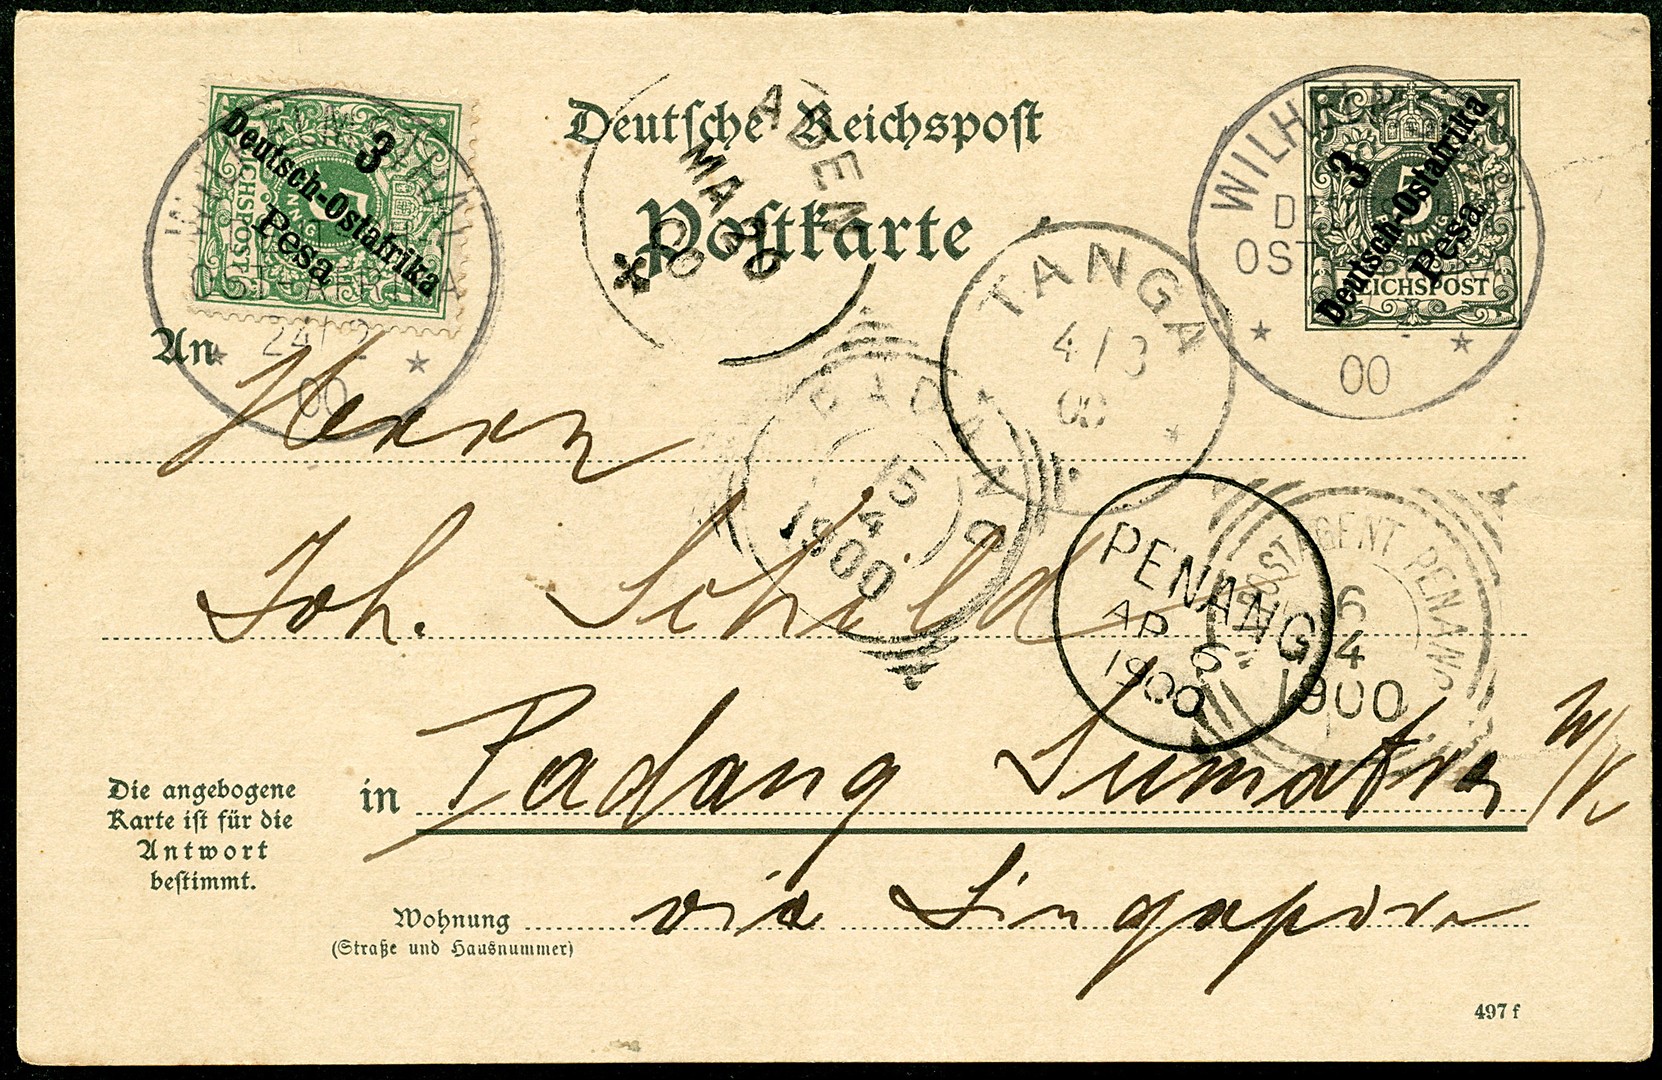 Deutsche Reichspost
Postkarte
3
Deutsch-Ostafrika
Pesa
REICHSPOST
24/2
00
ADEN
MA 20
00
TANGA
4/3
00
WILH
OST
REICHSPOST
3
Deutsch-Ostafrika
Pesa
00
An Herrn
PADANG
15
4
1900
Joh. Schild
PENANG
AP 6
1900
POSTAGENT PENANG
6
4
1900
Die angebogene
Karte ist für die
Antwort
bestimmt.
in Padang Sumatra W/K
Wohnung via Singapore
(Straße und Hausnummer)
497 f